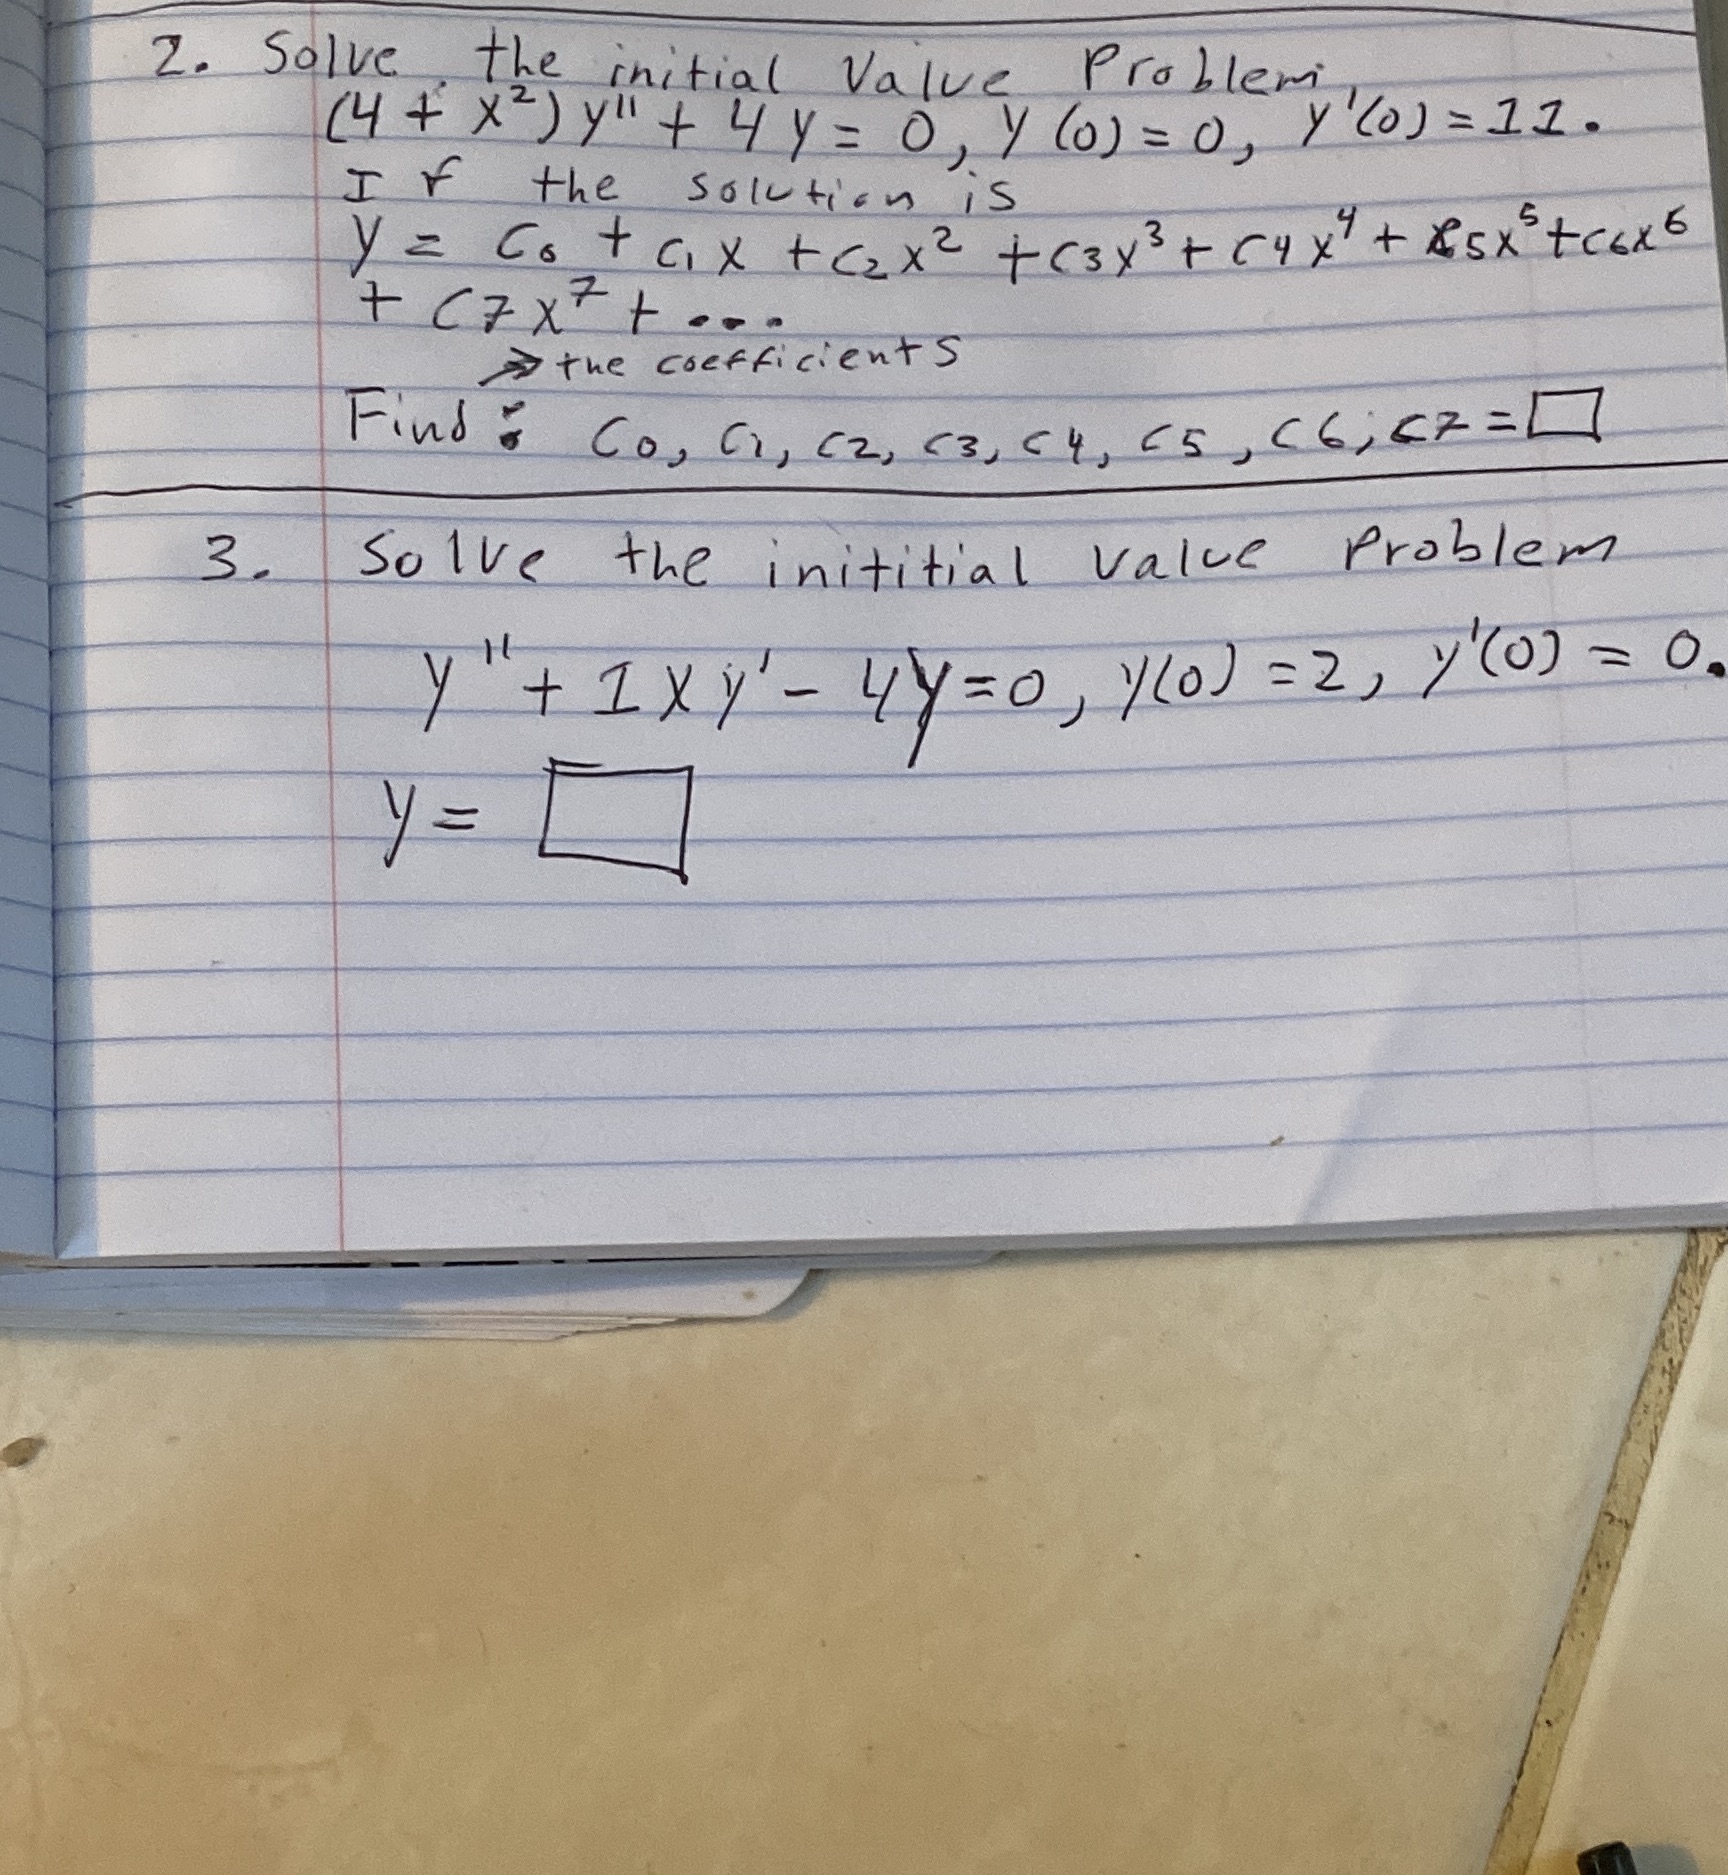 2. Solve the initial Value Problem,
(4 + x²) y'' + 4y = 0, y(0) = 0, y'(0) = 11.
If the solution is
y = c₀ + c₁x + c₂x² + c3x³ + c4x⁴ + c5x⁵ + c6x⁶
+ c7x⁷ + ...
→ the coefficients
Find: c₀, c₁, c2, c3, c4, c5, c6, c7 = □
3. Solve the inititial value problem
y'' + 1xy' - 4y = 0, y(0) = 2, y'(0) = 0.
y = □